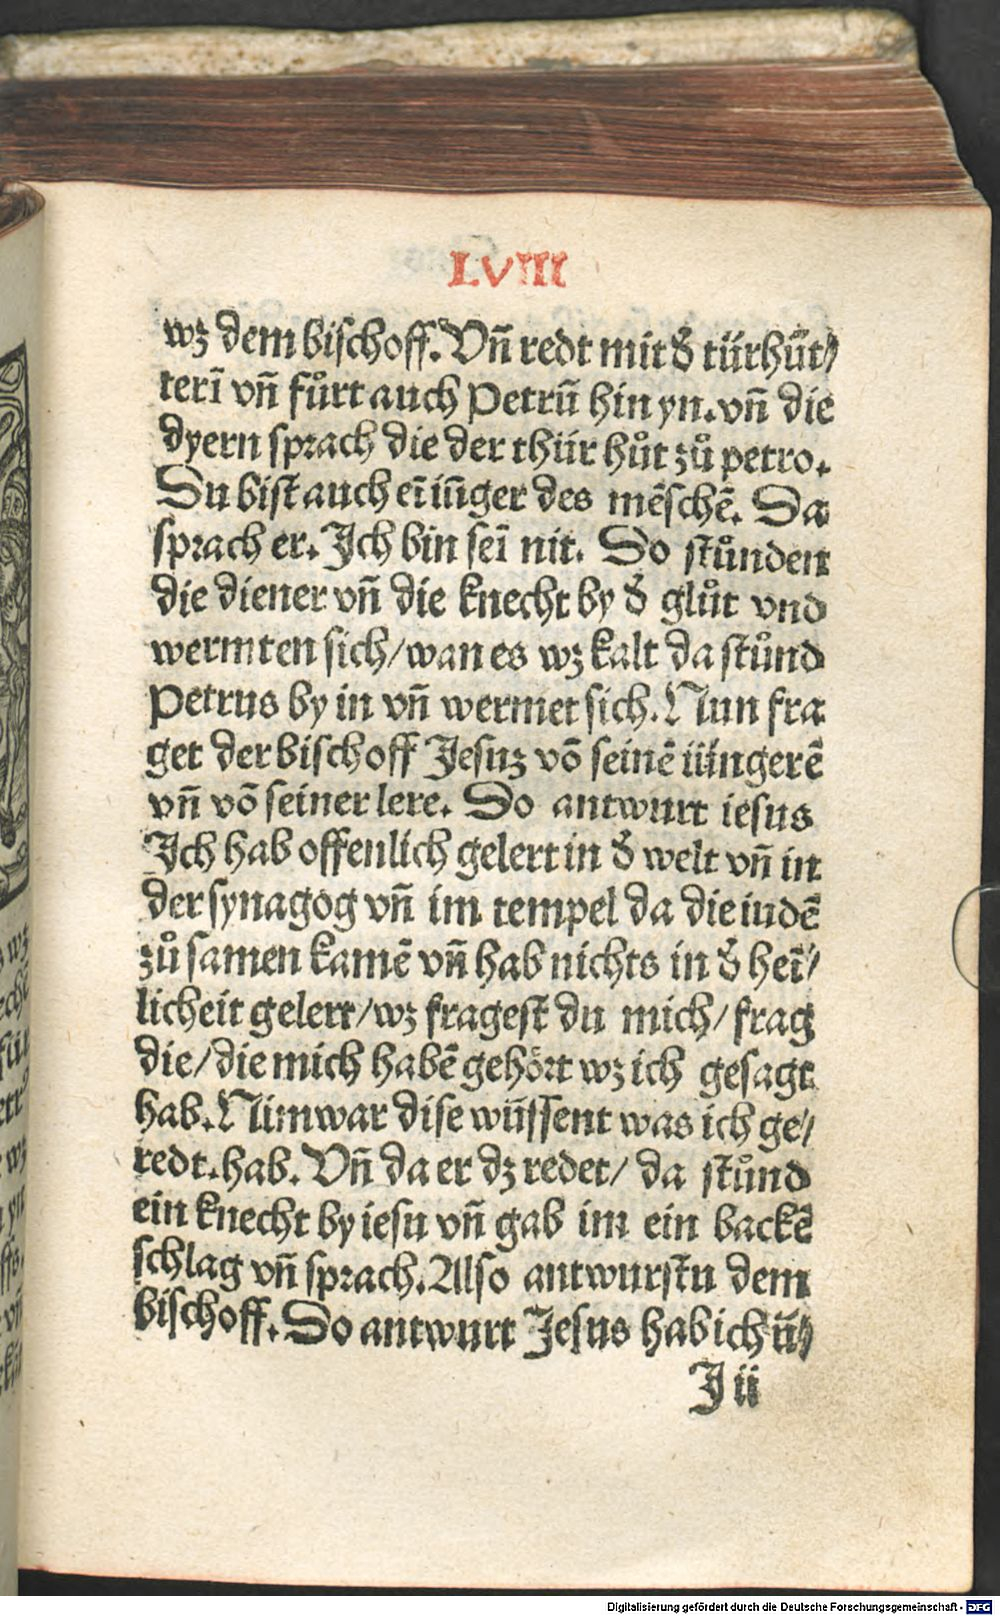 LVIII
wz dem bischoff. Vn̄ redt mit d̕ türhüt⸗
terī vn̄ fůrt auch Petrū hin yn. vn̄ die
dyern sprach die der thür hůt zů petro.
Du bist auch eī iūger des mēschē. Da
sprach er. Ich bin seī nit. So stůnden
die diener vn̄ die knecht by d̕ glůt vnd
wermten sich/ wan es wz kalt da stůnd
Petrus by in vn̄ wermet sich. Nun fra
get der bischoff Jesuz vō seinē iüngerē
vn̄ vō seiner lere. So antwurt iesus
Ich hab offenlich gelert in d̕ welt vn̄ in
der synagog vn̄ im tempel da die iudē
zů samen kamē vn̄ hab nichts in d̕ heī⸗
licheit gelert/ wz fragest du mich/ frag
die/ die mich habē gehört wz ich gesagt
hab. Nim war dise wüssent was ich ge⸗
redt. hab. Vn̄ da er dz redet/ da stůnd
ein knecht by iesu vn̄ gab im ein backē
schlag vn̄ sprach. Also antwurstu dem
bischoff. So antwurt Jesus hab ich ü⸗
J ii
Digitalisierung gefördert durch die Deutsche Forschungsgemeinschaft - DFG